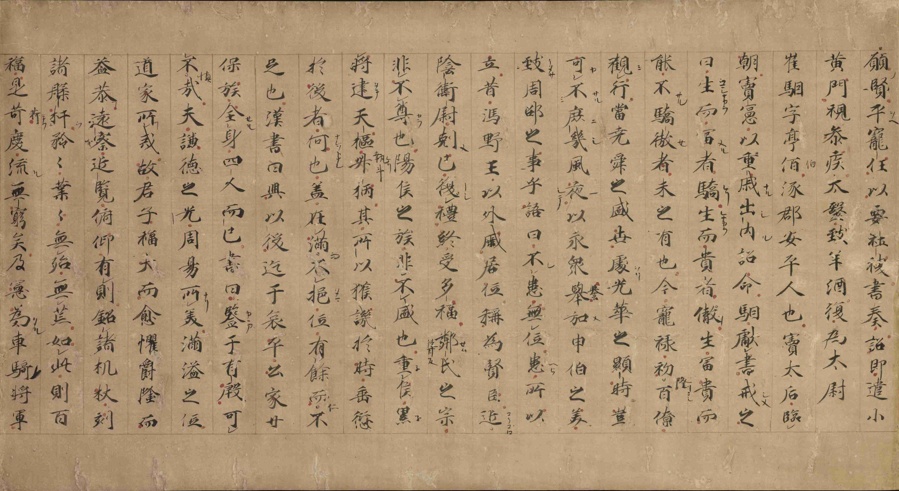 願賢平寵任以要社禝書奏詔即遣小
黄門視恭疾太醫致羊酒復為太尉
崔駰字亭伯涿郡安平人也竇太后臨
朝竇憲以重戚出内詔命駰獻書戒之
曰生而富者驕生而貴者傲生富貴而
能不驕傲者未之有也今寵祿初隆百僚
觀行當堯舜之盛世處光華之顯時豈
可不庶幾夙夜以永衆譽加申伯之美
致周邵之事乎語曰不患無位患所以
立昔馮野王以外戚居位稱為賢臣近
陰衛尉剋己復禮終受多福郯氏之宗
非不尊也陽侯之族非不盛也重侯累
將建天樞外柄其所以獲譏於時垂愆
於後者何也蓋在滿而不挹位有餘而仁不
足也漢書曰興以後迄于哀平公家廿
保族全身四人而已書曰鑒于有殷可
不慎哉夫謙德之光周易所美滿溢之位
道家所戒故君子福大而愈懼爵隆而
益恭遠察近覽俯仰有則銘諸机杖刻
諸槃杅矜〻業〻無殆無荒如此則百
福是荷慶流無窮矣及憲為車騎將軍